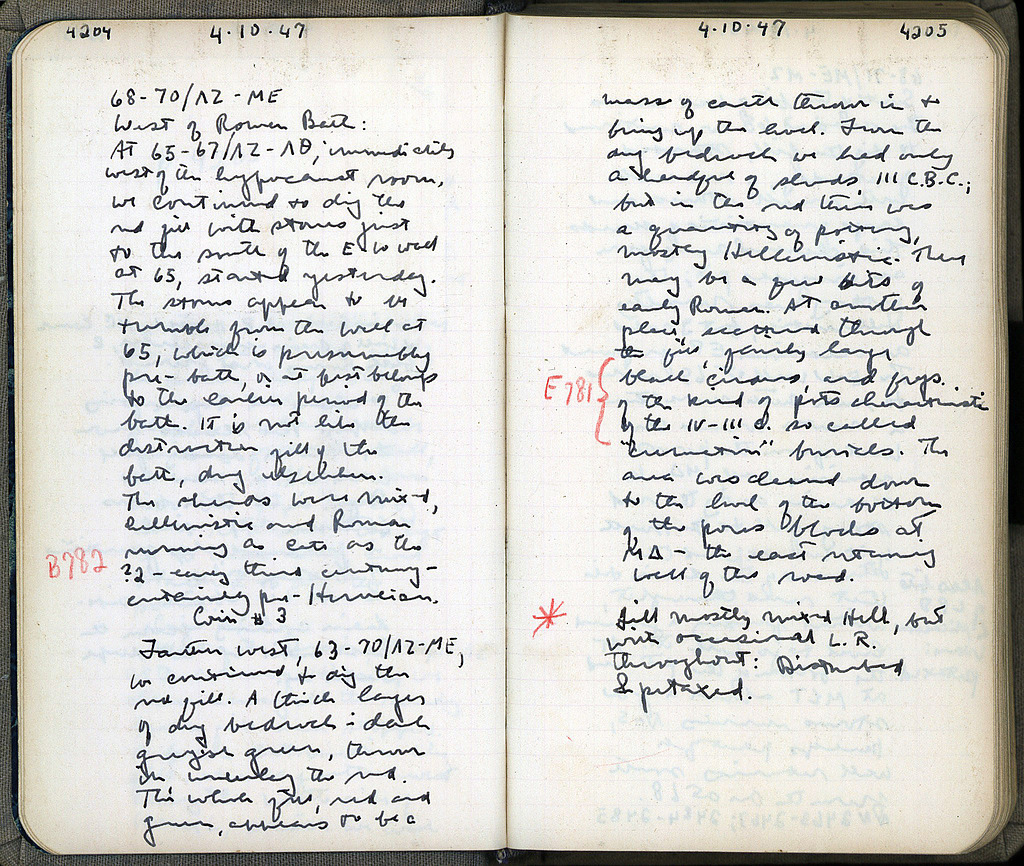 4204 4·10·47
68-70/ΛΖ-ΜΕ
West of Roman Bath:
At 65-67/ΛΖ-ΛΘ, immediately
west of the hypocaust room,
we continued to dig the
red fill with stones just
to the south of the E-W wall
at 65, started yesterday.
The stones appear to be
tumble from the wall at
65, which is presumably
pre-bath, or at best belongs
to the earlier period of the
bath. It is not like the
destruction fill of the
bath, dug elsewhere.
The sherds were mixed,
Hellenistic and Roman
running as late as the
B782
?2 - early third century -
certainly pre-Herulian.
Coin # 3
Farther west, 63-70/ΛΖ-ΜΕ,
we continued to dig the
red fill. A thick layer
of dug bedrock - dark
greyish green, thrown
in, underlay the red.
The whole fill, red and
green, appears to be a
4·10·47 4205
mass of earth thrown in to
bring up the level. From the
dug bedrock we had only
a handful of sherds, III C.B.C.;
but in the red there was
a quantity of pottery,
mostly Hellenistic. There
may be a few bits of
early Roman. At another
place, scattered through
the fill fairly large
black cinders, and frags.
E781
of the kind of pots characteristic
of the IV-III c. so called
"cremation" burials. The
area was cleared down
to the level of the bottom
of the poros blocks at
ΜΔ - the east retaining
wall of the road.
Fill mostly mixed Hell, but
with occasional L.R.
throughout: Disturbed
& pitaxed.